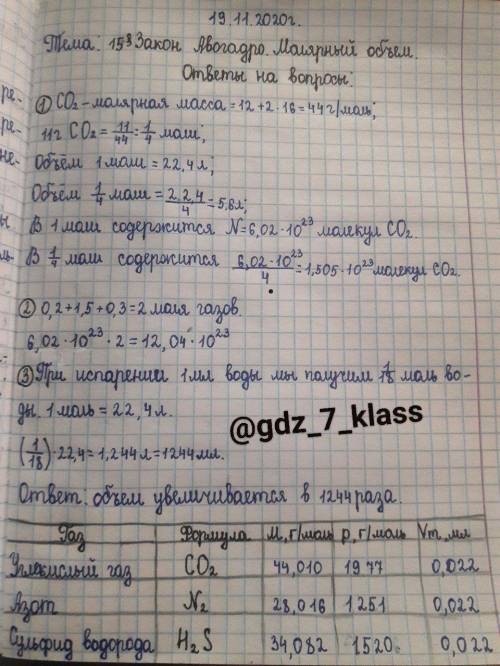 19.11.2020г.
Тема: 15§ Закон Авогадро. Молярный объем.
Ответы на вопросы:
① CO₂ - молярная масса = 12 + 2 · 16 = 44 г/моль;
11г CO₂ = 11/44 = 1/4 маш;
Объём 1 маш = 22,4 л;
Объём 1/4 маш = 2 2,4/4 = 5,6 л;
В 1 маш содержится N = 6,02 · 10²³ молекул CO₂.
В 1/4 маш содержится 6,02 · 10²³/4 = 1,505 · 10²³ молекул CO₂.
② 0,2 + 1,5 + 0,3 = 2 маля газов.
6,02 · 10²³ · 2 = 12,04 · 10²³
③ При испарении 1 мл воды мы получим 1/18 маль во-
ды. 1 моль = 22,4 л.
@gdz_7_klass
(1/18) · 22,4 = 1,244 л = 1244 мл.
Ответ: объем увеличивается в 1244 раза.
Газ Формула M, г/моль p, г/моль Vm, мл
Углекислый газ CO₂ 44,010 1977 0,022
Азот N₂ 28,016 1251 0,022
Сульфид водорода H₂S 34,082 1520 0,022